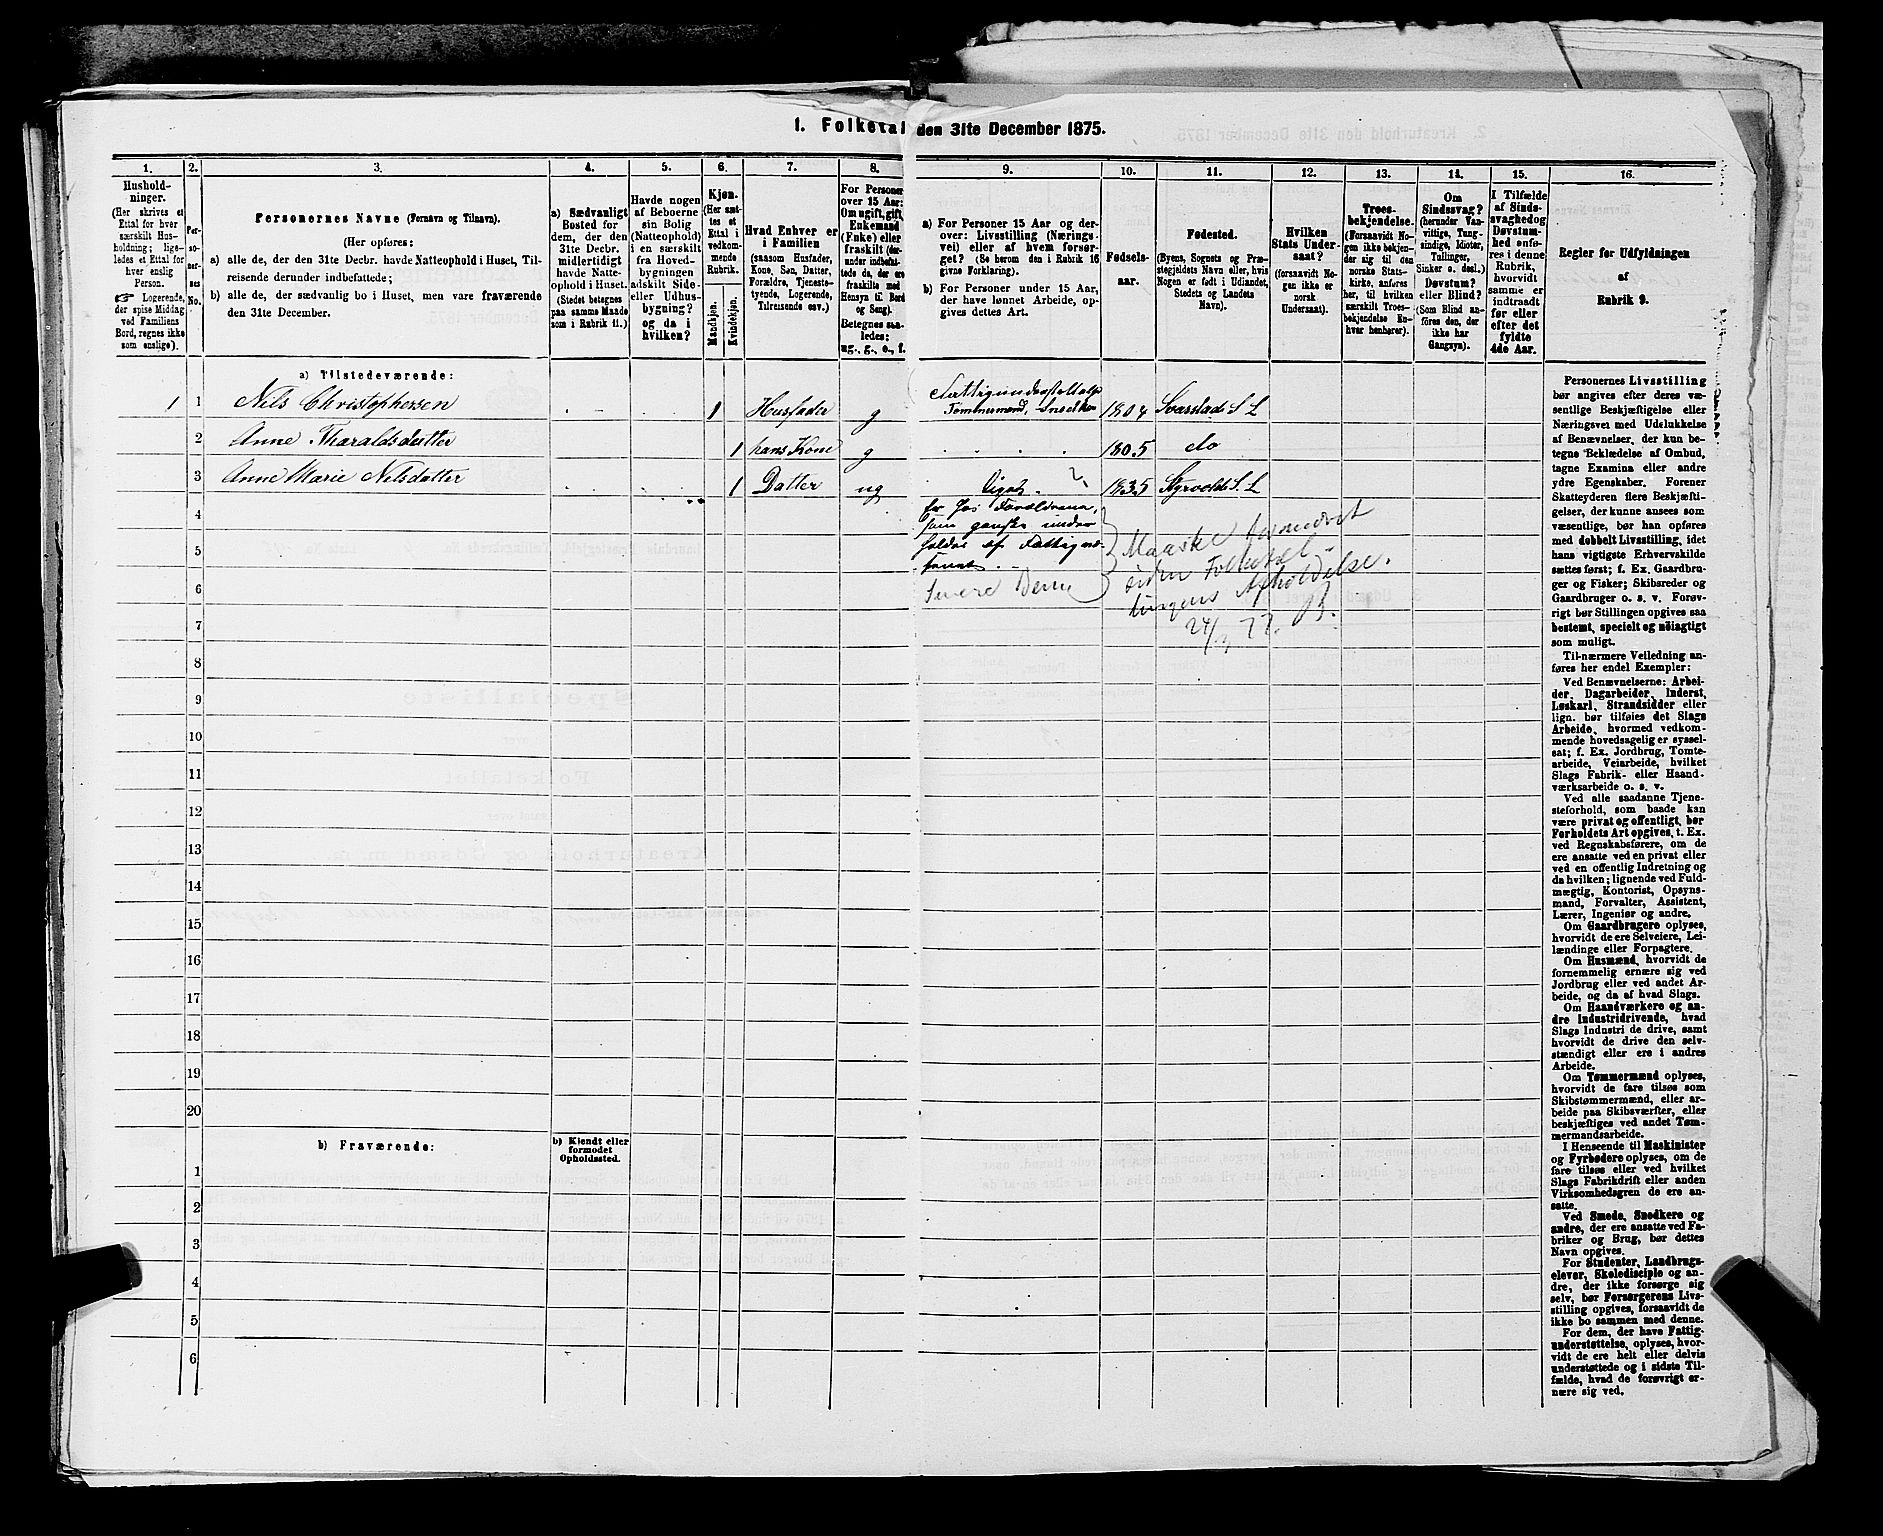 1. Folketal den 31te December 1875.
1.
Hushold-
ninger.
(Her skrives et
Ettal for hver
særskilt Hus-
holdning; lige-
ledes et Ettal for
hver enslig
Person.
☞ Logerende,
der spise Middag
ved Familiens
Bord, regnes ikke
som enslige).
2.
Per-
so-
ner-
nes
No.
3.
Personernes Navne (Fornavn og Tilnavn).
(Her opføres:
a) alle de, der den 31te Decbr. havde Natteophold i Huset, Til-
reisende derunder indbefattede;
b) alle de, der sædvanlig bo i Huset, men vare fraværende
den 31te December.
4.
a) Sædvanligt
Bosted for
dem, der den
31te Decbr.
midlertidigt
havde Natte-
ophold i Huset.
(Stedet betegnes
paa samme Maade
som i Rubrik 11.)
5.
Havde nogen
af Beboerne
sin Bolig
(Natteophold)
i en særskilt
fra Hoved-
bygningen
adskilt Side-
eller Udhus-
bygning?
og da i
hvilken?
6.
Kjøn.
(Her sæt-
tes et
Ettal i
vedkom-
mende
Rubrik.
Mandkjøn.
Kvindekjøn.
7.
Hvad Enhver er
i Familien
(saasom Husfader,
Kone, Søn, Datter,
Forældre, Tjeneste-
tyende, Logerende,
Tilreisende osv.)
8.
For Personer
over 15 Aar:
Om ugift, gift,
Enkemand
(Enke) eller
fraskilt (der-
under indbefat-
tede da, der ere
fraskilte med
Hensyn til Bord
og Seng).
Betegnes saa-
ledes:
ug., g., e., f.
9.
a) For Personer 15 Aar og der-
over: Livsstilling (Nærings-
vei) eller af hvem forsør-
get? (Se herom den i Rubrik 16
givne Forklaring).
b) For Personer under 15 Aar,
der have lønnet Arbeide, op-
gives dettes Art.
10.
Fødsels-
aar.
11.
Fødested.
(Byens, Sognets og Præ-
stegjeldets Navn eller, hvis
Nogen er født i Udlandet,
Stedets og Landets
Navn).
12.
Hvilken
Stats Under-
saat?
(forsaavidt No-
gen ikke er
norsk
Undersaat).
13.
Troes-
bekjendelse.
(Forsaavidt No-
gen ikke bekjen-
der sig til den
norske Stats-
kirke, anføres
her, til hvilken
særskilt Troes-
bekjendelse En-
hver henhører).
14.
Om
Sindssvag?
(herunder Van-
vittige, Tung-
sindige, Idioter,
Tullinger,
Sinker o. desl.)
Døvstum?
eller Blind?
(Som Blind an-
føres den, der
ikke har
Gangsyn).
15.
I Tilfælde
af Sinds-
svaghed og
Døvstum-
hed anfø-
res i denne
Rubrik,
hvorvidt
samme er
indtraadt
før eller
efter det
fyldte
4de Aar.
16.
Regler for Udfyldningen
af
Rubrik 9.
a) Tilstedeværende:
1 1 Nils Christophersen - - 1 Husfader g Fattigunderstøttelse
Tømmermand, Snedker 1804 Svarstad S. L
2 Anne Tharaldsdatter 1 hans Kone g 1805 do
3 Anne Marie Nilsdatter 1 Datter ug 1835 Styrvold S. L
er hos Forældrene,
som ganske under
holdes af Fattigvæ-
senet.
Maaske
siden Folketæl
lingens Afholdelse.
4
5
6
7
8
9
10
11
12
13
14
15
16
17
18
19
20
b) Fraværende:
b) Kjendt eller
formodet
Opholdssted.
1
2
3
4
5
6
Personernes Livsstilling
bør angives efter deres væ-
sentlige Beskjæftigelse eller
Næringsvei med Udelukkelse
af Benævnelser, der kun be-
tegne Beklædelse af Ombud,
tagne Examina eller andre
ydre Egenskaber. Forener
Skatteyderen flere Beskjæfti-
gelser, der kunne ansees som
væsentlige, bør han opføres
med dobbelt Livsstilling, idet
hans vigtigste Erhvervskilde
sættes først; f. Ex. Gaardbru-
ger og Fisker; Skibsreder og
Gaardbruger o. s. v. Forøv-
rigt bør Stillingen opgives saa
bestemt, specielt og nøiagtigt
som muligt.
Til nærmere Veiledning an-
føres her endel Exempler:
Ved Benævnelserne: Arbei-
der, Dagarbeider, Inderst,
Løskarl, Strandsidder eller
lign. bør tilføies det Slags
Arbeide, hvormed vedkom-
mende hovedsagelig er syssel-
sat; f. Ex. Jordbrug, Tomte-
arbeide, Veiarbeide, hvilket
Slags Fabrik- eller Haand-
værksarbeide o. s. v.
Ved alle saadanne Tjene-
steforhold, som baade kan
være privat og offentligt, bør
Forholdets Art opgives, t. Ex.
ved Regnskabsførere, om de
ere ansatte ved en privat eller
ved en offentlig Indretning og
da hvilken; lignende ved Fuld-
mægtig, Kontorist, Opsyns-
mand, Forvalter, Assistent,
Lærer, Ingeniør og andre.
Om Gaardbrugere oplyses,
hvorvidt de ere Selveiere, Lei-
lændinge eller Forpagtere.
Om Husmænd, hvorvidt de
fornemmelig ernære sig ved
Jordbrug eller ved andet Ar-
beide, og da af hvad Slags.
Om Haandværkere og an-
dre Industridrivende, hvad
Slags Industri de drive, samt
hvorvidt de drive den selv-
stændigt eller ere i andres
Arbeide.
Om Tømmermænd oplyses,
hvorvidt de fare tilsøs som
Skibstømmermænd, eller ar-
beide paa Skibsværfter, eller
beskjæftiges ved andet Tøm-
mermandsarbeide.
I Henseende til Maskinister
og Fyrbødere oplyses, om de
fare tilsøs eller ved hvilket
Slags Fabrikdrift eller anden
Virksomhedsgren de ere an-
satte.
Ved Smede, Snedkere og
andre, der ere ansatte ved Fa-
briker og Brug, bør dettes
Navn opgives.
For Studenter, Landbrugs-
elever, Skoledisciple og an-
dre, der ikke forsørge sig
selv, bør Forsørgerens Livs-
stilling opgives, forsaavidt de
ikke bo sammen med denne.
For dem, der have Fattig-
understøttelse, oplyses, hvor-
vidt de ere helt eller delvis
understøttede og i sidste Til-
fælde, hvad de forøvrigt er-
nære sig ved.